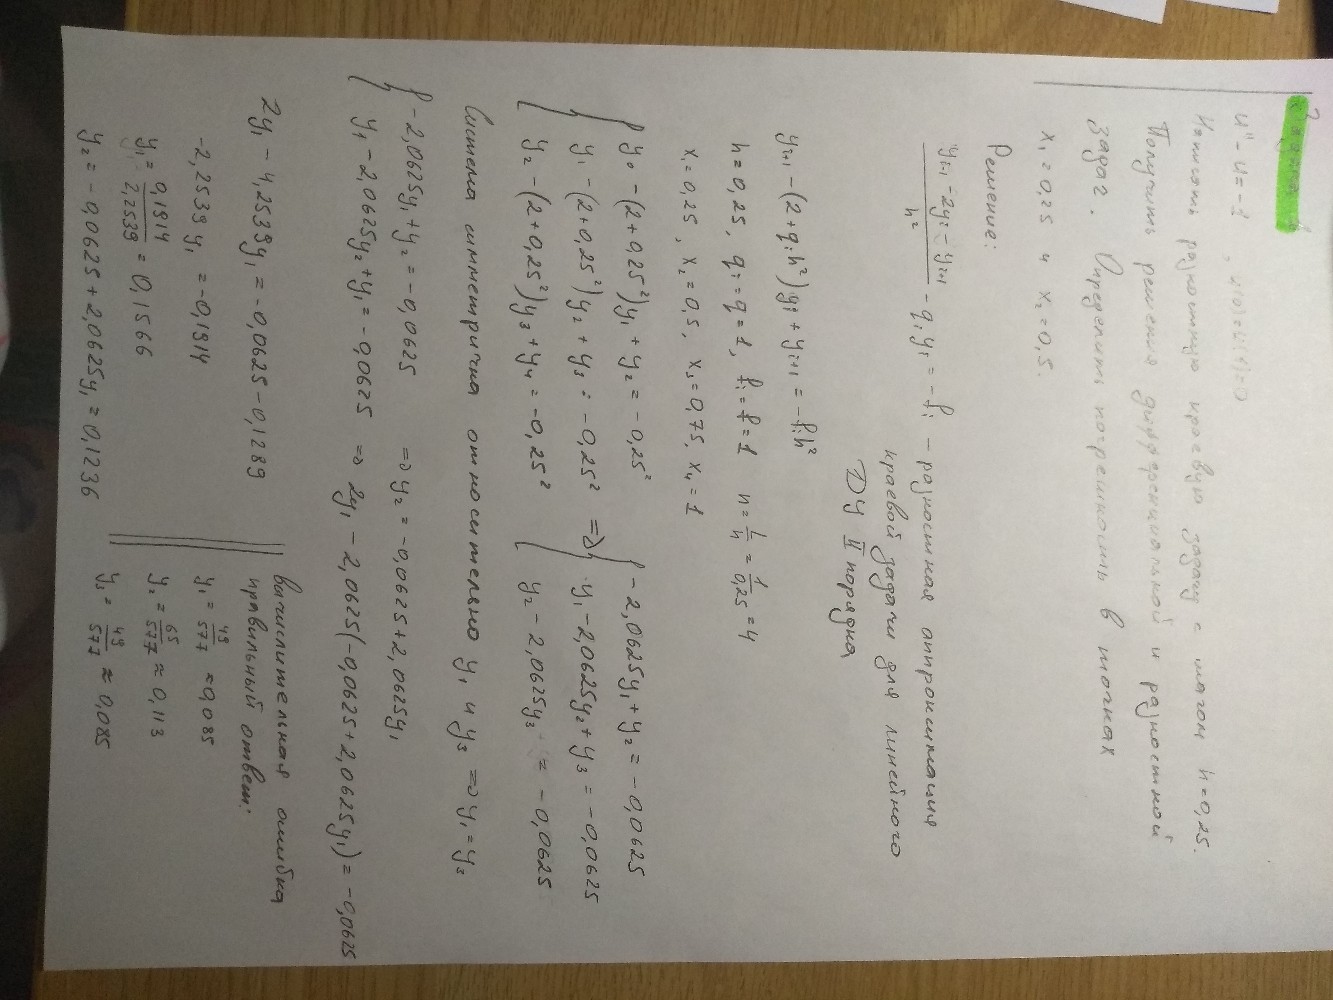 Задача 1
u" - u = -1, u(0) = u(1) = 0
Написать разностную краевую задачу с шагом h = 0,25.
Получить решения дифференциальной и разностной
задач. Определить погрешность в точках
x₁ = 0,25 и x₂ = 0,5.
Решение:
(yᵢ₋₁ - 2yᵢ - yᵢ₊₁)/h² - qᵢyᵢ = -fᵢ - разностная аппроксимация
краевой задачи для линейного
ДУ II порядка
yᵢ₋₁ - (2 + qᵢh²)yᵢ + yᵢ₊₁ = -fᵢh²
h = 0,25, qᵢ = q = 1, fᵢ = f = 1 n = 1/h = 1/0,25 = 4
x₁ = 0,25, x₂ = 0,5, x₃ = 0,75, x₄ = 1
{ y₀ - (2 + 0,25²)y₁ + y₂ = -0,25² { -2,0625y₁ + y₂ = -0,0625
y₁ - (2 + 0,25²)y₂ + y₃ = -0,25² => y₁ - 2,0625y₂ + y₃ = -0,0625
y₂ - (2 + 0,25²)y₃ + y₄ = -0,25² y₂ - 2,0625y₃ = -0,0625
Система симметрична относительно y₁ и y₃ => y₁ = y₃
{ -2,0625y₁ + y₂ = -0,0625 => y₂ = -0,0625 + 2,0625y₁
y₁ - 2,0625y₂ + y₁ = -0,0625 => 2y₁ - 2,0625(-0,0625 + 2,0625y₁) = -0,0625
2y₁ - 4,2539y₁ = -0,0625 - 0,1289
-2,2539y₁ = -0,1914
y₁ = 0,1914/2,2539 = 0,1566
y₂ = -0,0625 + 2,0625y₁ = 0,1236
вычислительная ошибка
правильный ответ:
y₁ = 49/577 ≈ 0,085
y₂ = 65/577 ≈ 0,113
y₃ = 49/577 ≈ 0,085